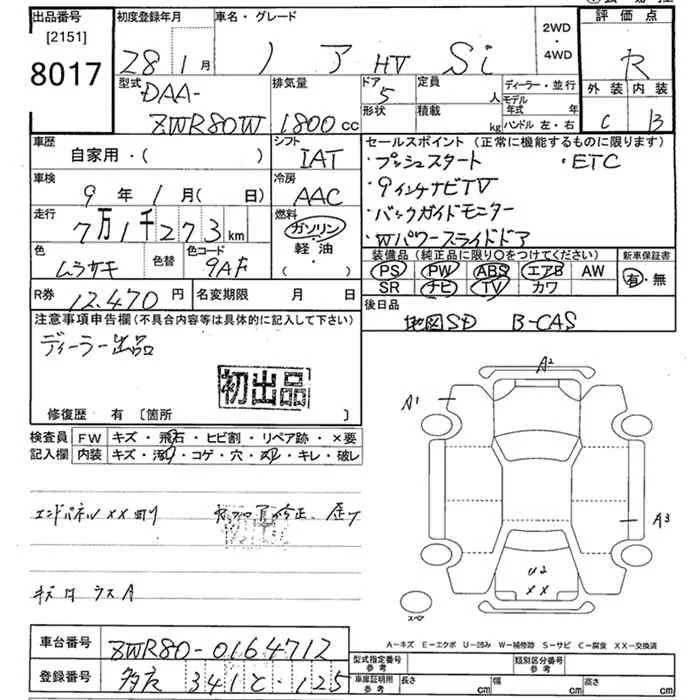 出品番号
[2151]
8017
初度登録年月
28年1月
車名・グレード
ノア HV Si
2WD
・
4WD
評価点
R
外装 内装
C B
型式
DAA-
ZWR80W
排気量
1800cc
ドア 5
形状
定員 人
積載 kg
ディーラー・並行
モデル年式 年
ハンドル 左・右
車歴
自家用・( )
シフト
IAT
車検
9年1月( 日)
冷房
AAC
走行
7万1千273km
燃料
ガソリン
・
軽油
・
( )
色
ムラサキ
色替
色コード
9AF
R券
12,470円
名変期限 月 日
セールスポイント(正常に機能するものに限ります)
・プッシュスタート ・ETC
・9インチナビTV
・バックガイドモニター
・Wパワースライドドア
装備品(純正品に限り○をつけてください)
PS PW ABS エアB AW
SR ナビ TV カワ
新車保証書
有・無
後日品
地図SD B-CAS
注意事項申告欄(不具合内容等は具体的に記入して下さい)
ディーラー出品
初出品
修復歴 有 〔箇所 〕
検査員
記入欄
FW キズ・飛石・ヒビ割・リペア跡・×要
内装 キズ・汚れ・コゲ・穴・スレ・キレ・破レ
エンドパネルXX凹ミ
A1
A2
A3
U2
XX
スペア
A-キズ E-エクボ U-凹み W-補修跡 S-サビ C-腐食 XX-交換済
車台番号
ZWR80-0164712
登録番号
341 と・125
型式指定番号
参考
類別区分番号
参考
車庫証明用
参考
長さ cm
幅 cm
高さ cm